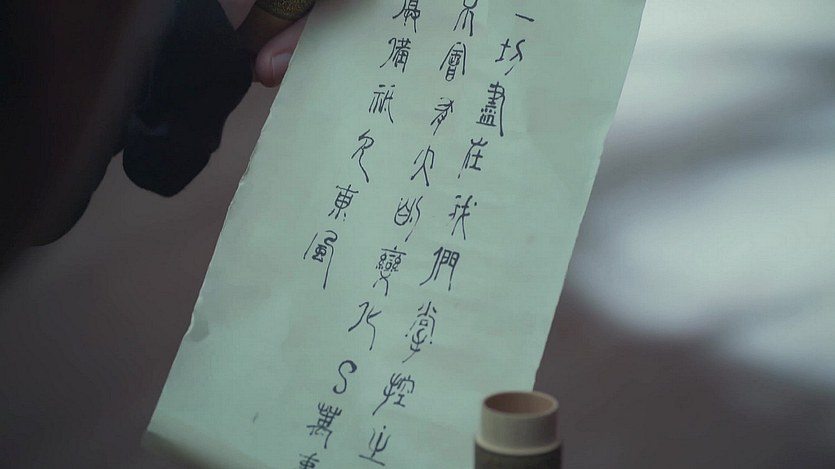 一切盡在我們掌控之
不會有大的變化S萬事
備祇欠東風